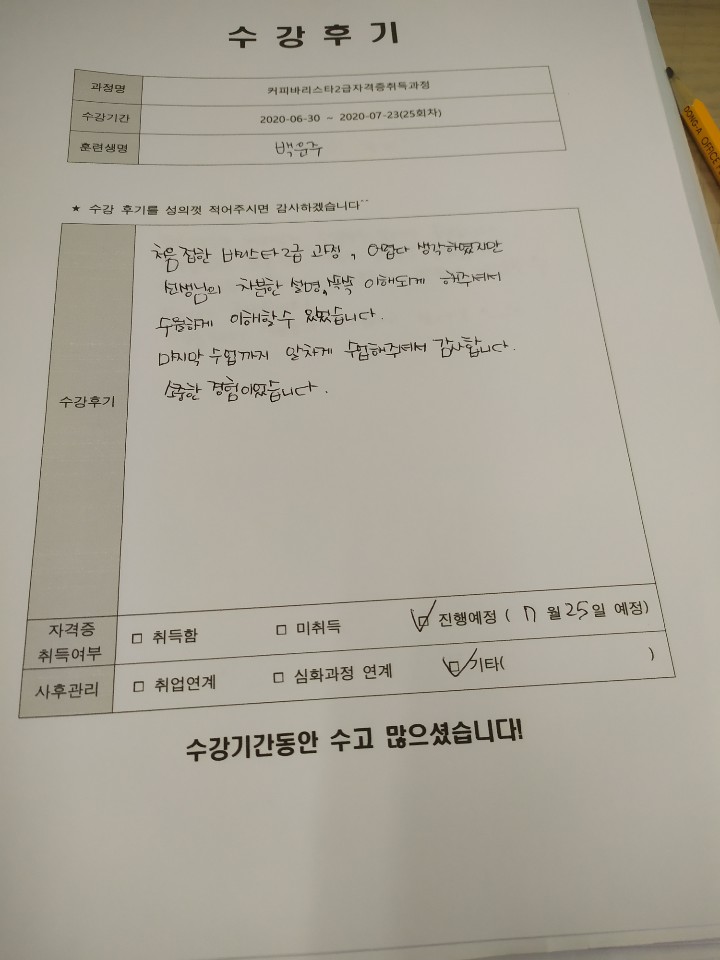 수강후기
과정명 커피바리스타2급자격증취득과정
수강기간 2020-06-30 ~ 2020-07-23(25회차)
훈련생명 백윤주
★ 수강 후기를 성의껏 적어주시면 감사하겠습니다^^
수강후기
처음 접한 바리스타 2급 과정, 어렵다 생각하였지만
선생님의 차분한 설명, 쏙쏙 이해되게 해주셔서
수월하게 이해할 수 있었습니다.
마지막 수업까지 알차게 수업해주셔서 감사합니다.
소중한 경험이었습니다.
자격증
취득여부
□ 취득함 □ 미취득 ☑ 진행예정 ( 7 월 25일 예정)
사후관리 □ 취업연계 □ 심화과정 연계 ☑ 기타( )
수강기간동안 수고 많으셨습니다!
DONG-A OFFICE